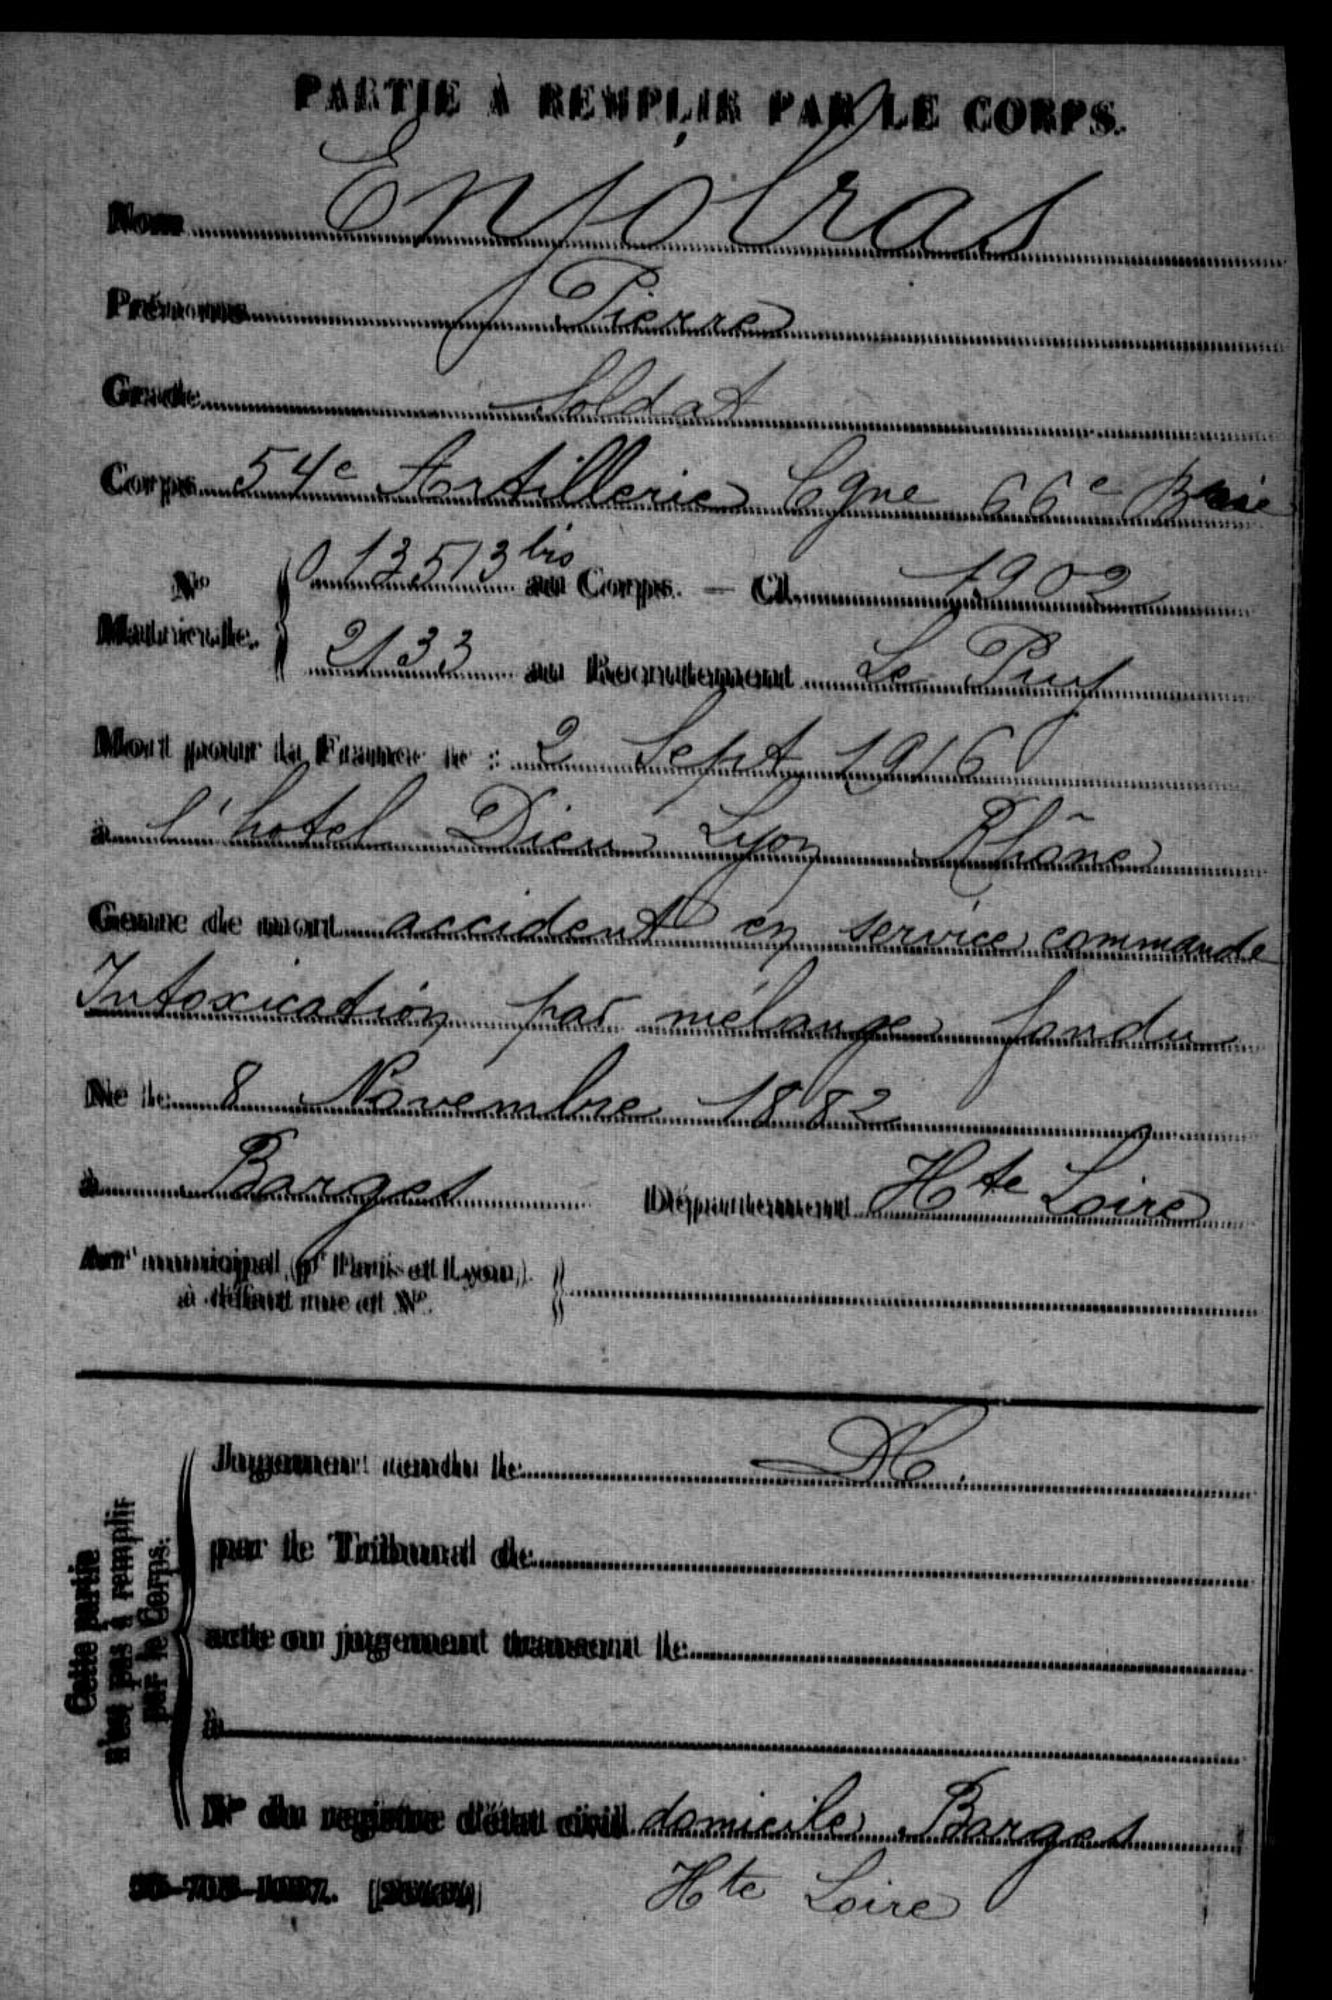 PARTIE À REMPLIR PAR LE CORPS.
Nom Enjolras
Prénoms Pierre
Grade Soldat
Corps 54e Artillerie Cgne 66e Brie
No Matricule. 13513 bis au Corps. — Cl. 1902
2133 au Recrutement Le Puy
Mort pour la France le : 2 Sept 1916
à l'hotel Dieu Lyon Rhône
Genre de mort accident en service commande
Intoxication par mélange fondu
Né le 8 Novembre 1882
à Barges Département Hte Loire
Arrt municipal (pr Paris et Lyon),
à défaut rue et No.
Jugement rendu le
par le Tribunal de
acte ou jugement transcrit le
à
No du registre d'état civil domicile Barges
Hte Loire
Cette partie
n'est pas à remplir
par le Corps.